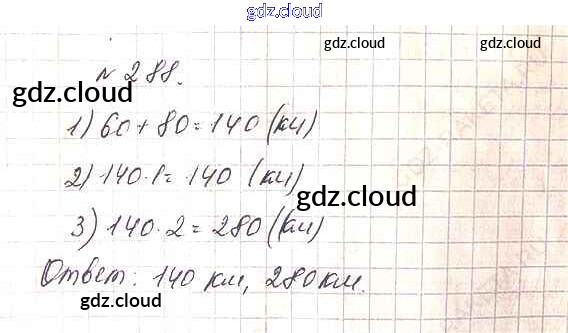 gdz.cloud
gdz.cloud gdz.cloud
№ 288.
gdz.cloud
1) 60 + 80 = 140 (км)
2) 140 · 1 = 140 (км)
gdz.cloud
3) 140 · 2 = 280 (км)
Ответ: 140 км, 280 км.
gdz.cloud
gdz.cloud